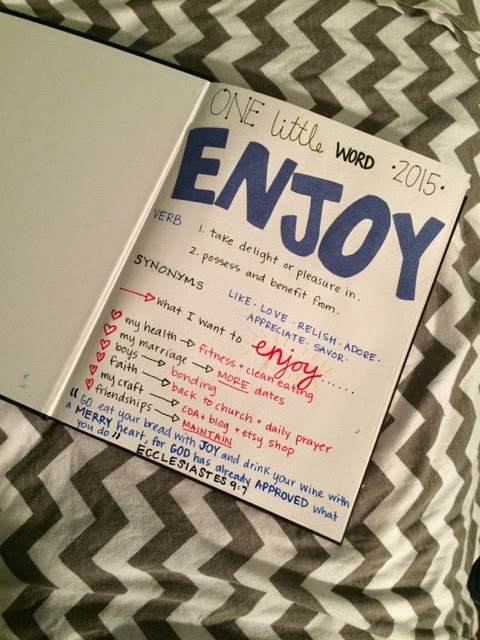 ONE little WORD • 2015 •
ENJOY
VERB 1. take delight or pleasure in.
2. possess and benefit from.
SYNONYMS LIKE • LOVE • RELISH • ADORE •
APPRECIATE • SAVOR •
→ what I want to enjoy......
♡ my health → fitness + clean eating
♡ my marriage → MORE dates
♡ boys → bonding
♡ faith → back to church + daily prayer
♡ my craft → CDA + blog + etsy shop
♡ friendships → MAINTAIN
"GO eat your bread with JOY and drink your wine with
a MERRY heart, for GOD has already APPROVED what
you do"
ECCLESIASTES 9:7